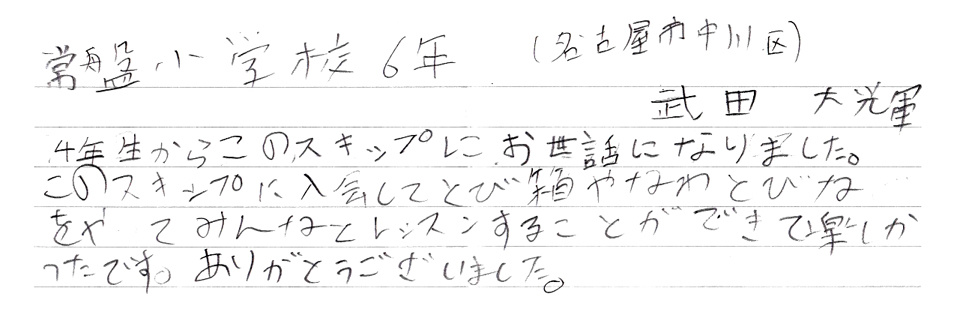 常盤小学校6年 (名古屋市中川区)
武田 大輝
4年生からこのスキップにお世話になりました。
このスキップに入会してとび箱やなわとびな
をや てみんなとレッスンすることができて楽しか
ったです。ありがとうございました。